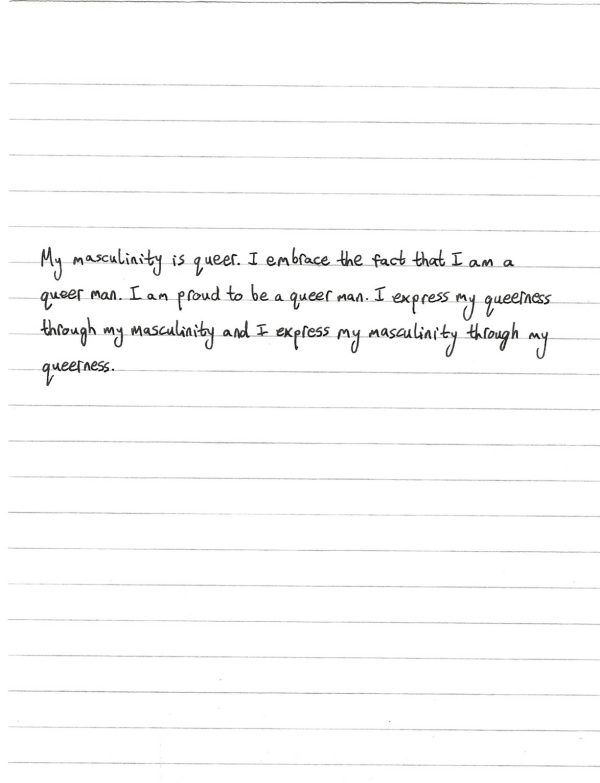 My masculinity is queer. I embrace the fact that I am a
queer man. I am proud to be a queer man. I express my queerness
through my masculinity and I express my masculinity through my
queerness.